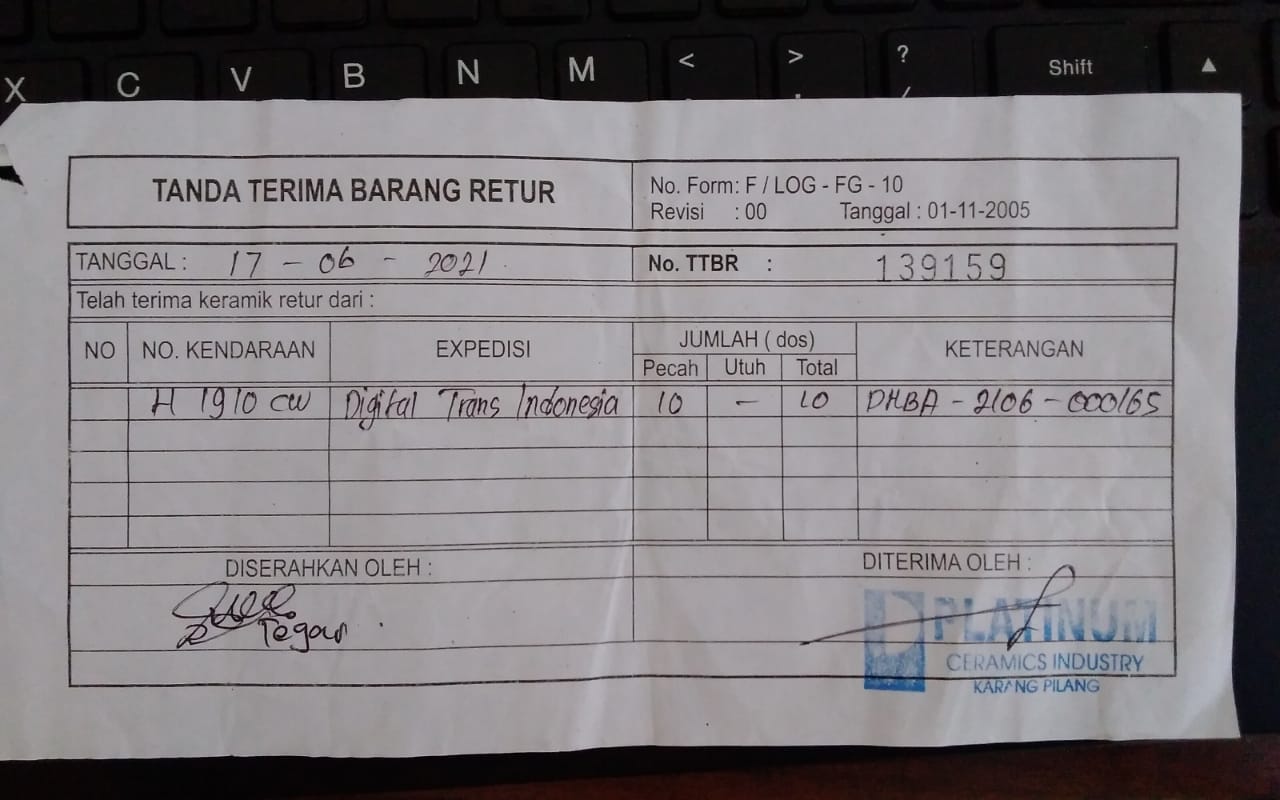 X C V B N M < > ? / Shift ▲
TANDA TERIMA BARANG RETUR
No. Form: F / LOG - FG - 10
Revisi : 00 Tanggal : 01-11-2005
TANGGAL : 17 - 06 - 2021. No. TTBR : 139159
Telah terima keramik retur dari :
NO NO. KENDARAAN EXPEDISI JUMLAH ( dos) KETERANGAN
Pecah Utuh Total
H 1910 CW Digital Trans Indonesia 10 - 10 DHBA - 2106 - 000165
DISERAHKAN OLEH : DITERIMA OLEH :
Tegar
PLATINUM
CERAMICS INDUSTRY
KARANG PILANG